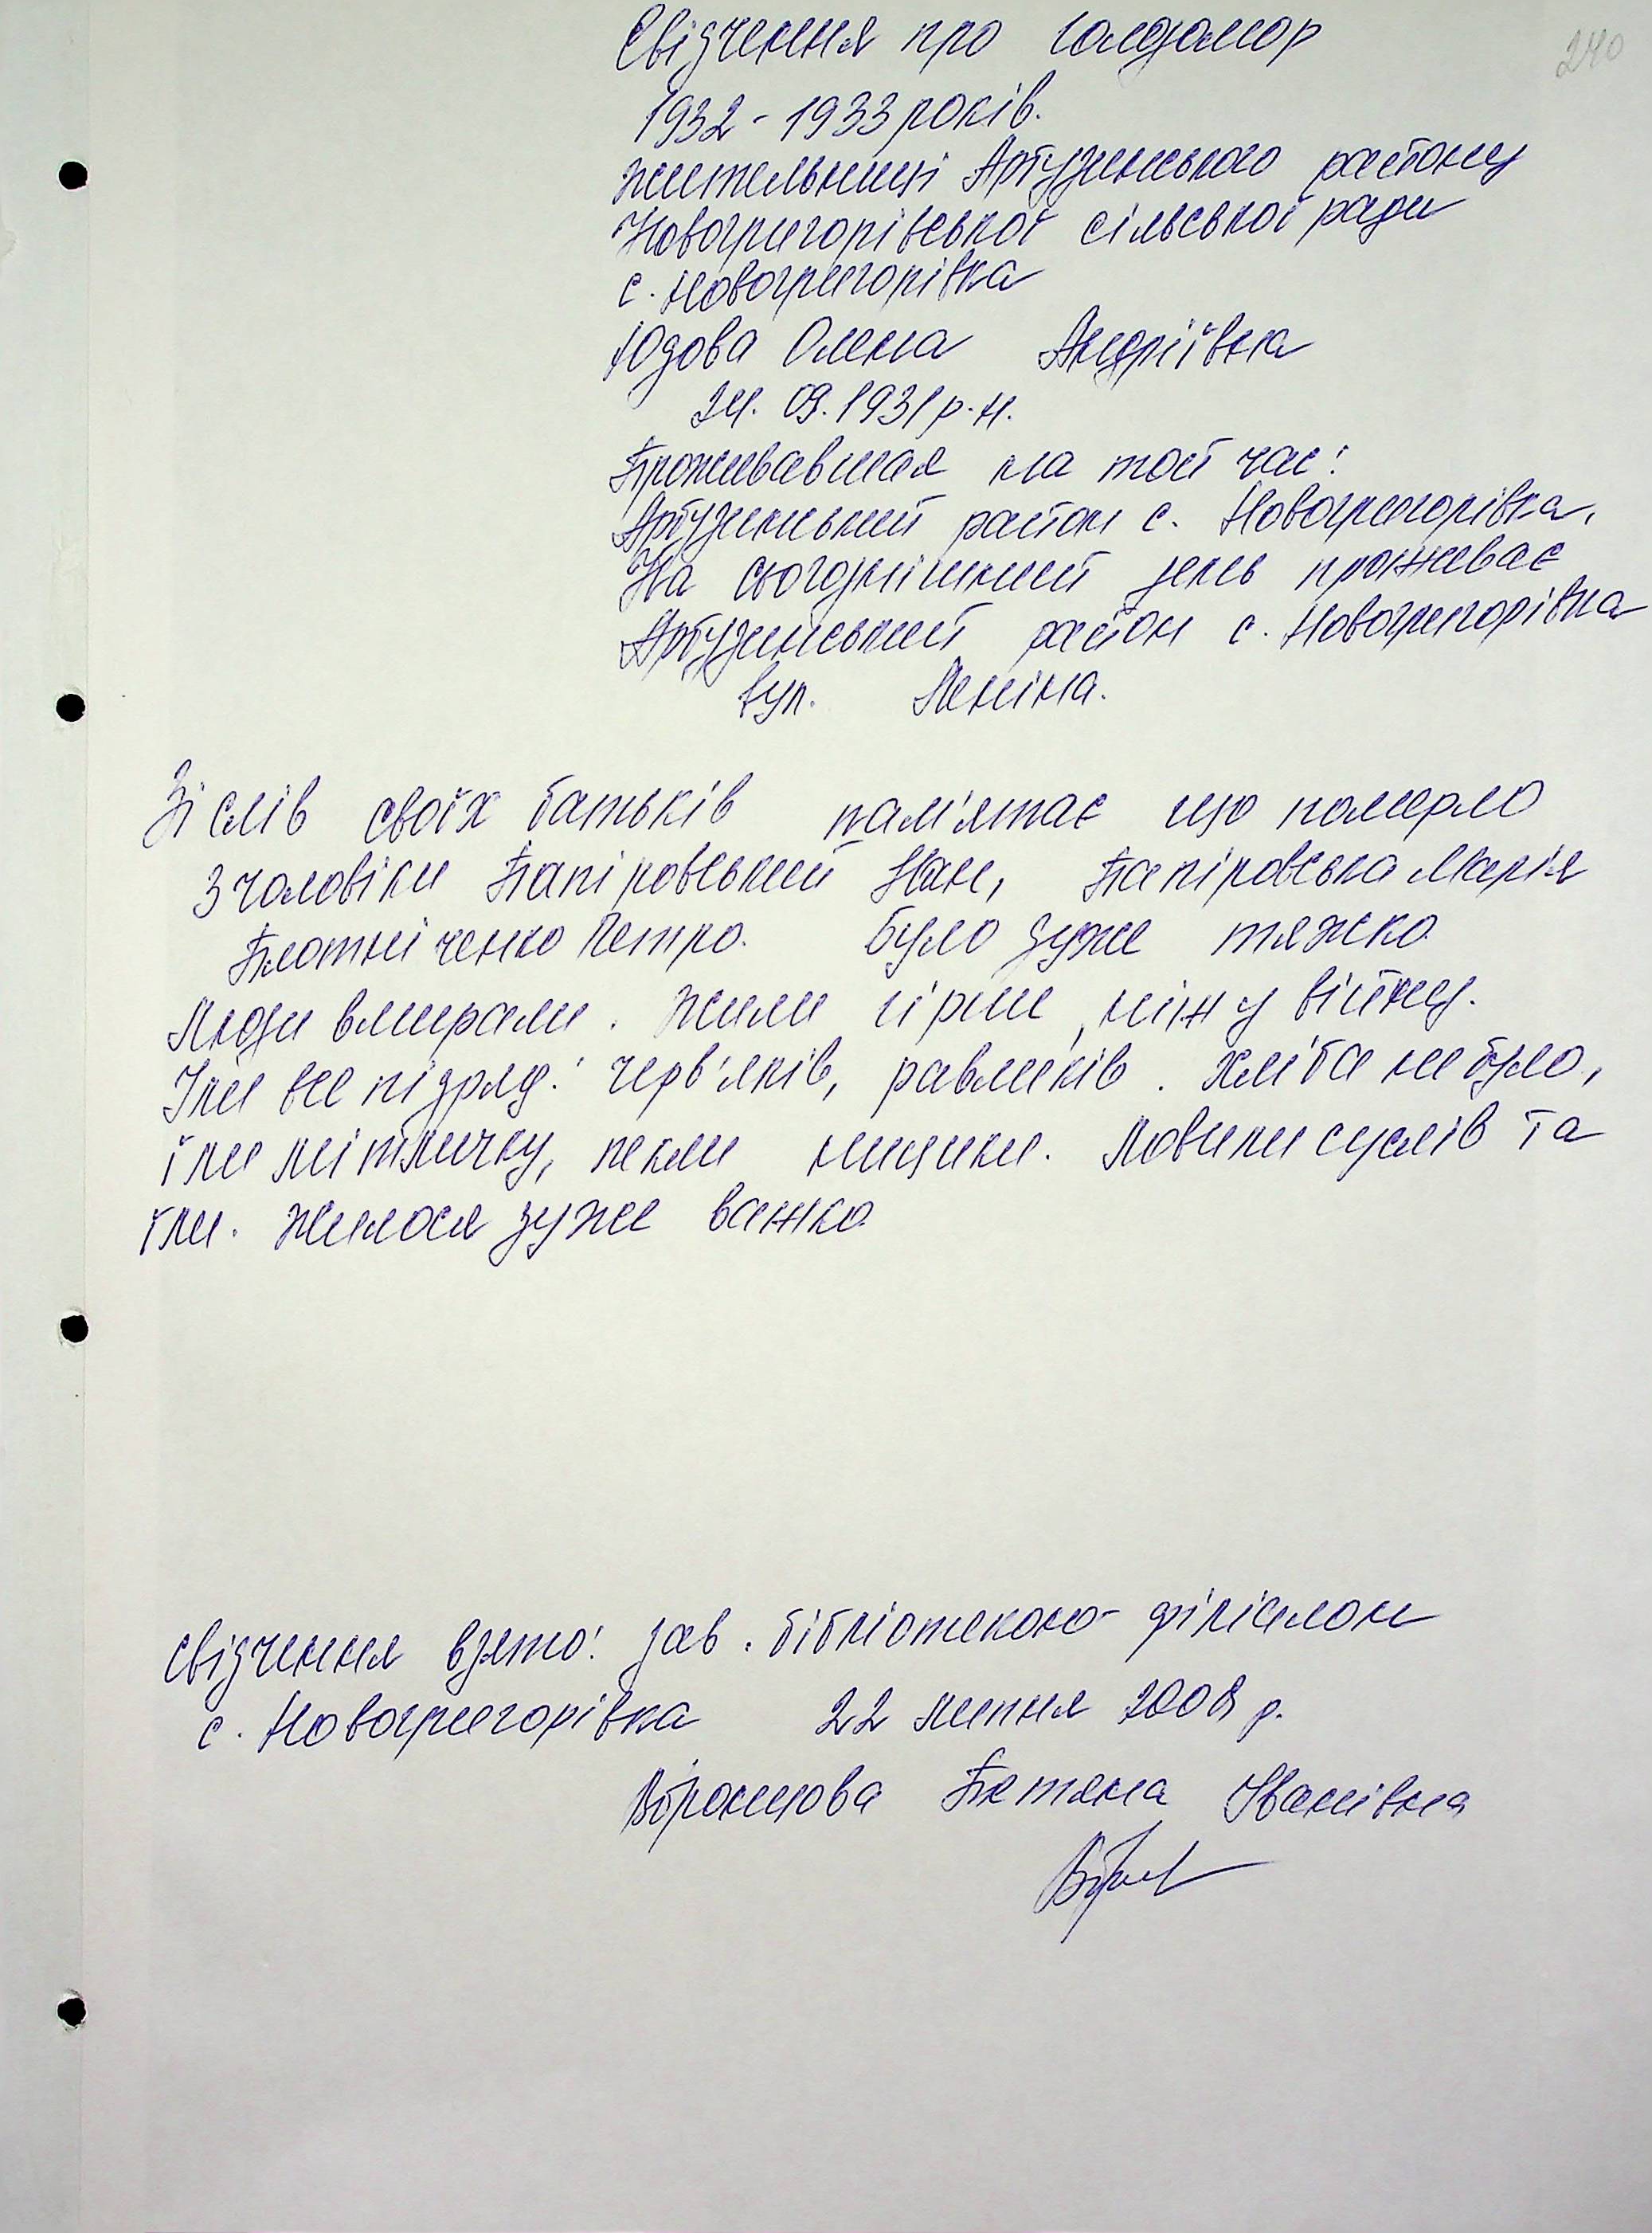 240
Свідчення про голодомор
1932-1933 років.
жительниці Артузинського району
Новогригорівської сільської ради
с. Новогригорівка
Юдова Олена Андріївна
24. 09. 1931 р.н.
Проживавшая на той час:
Артузинський район с. Новогригорівка.
На сьогоднішний день проживає
Артузинський район с. Новогригорівка
вул. Леніна.
Зі слів своїх батьків пам'ятає що померло
3 чоловіки Папіровський Іван, Папіровська Марія
Плотніченко Петро. Було дуже тяжко.
Люди вмирали. Жили гірше, ніж у війну.
Їли все підряд: черв'яків, равликів. Хліба не було,
їли мітличку, пекли ницики. Ловили суслів та
їли. Жилося дуже важко
Свідчення взято: зав. бібліотекою-філіалом
с. Новогригорівка 22 липня 2008 р.
Воронцова Тетяна Іванівна